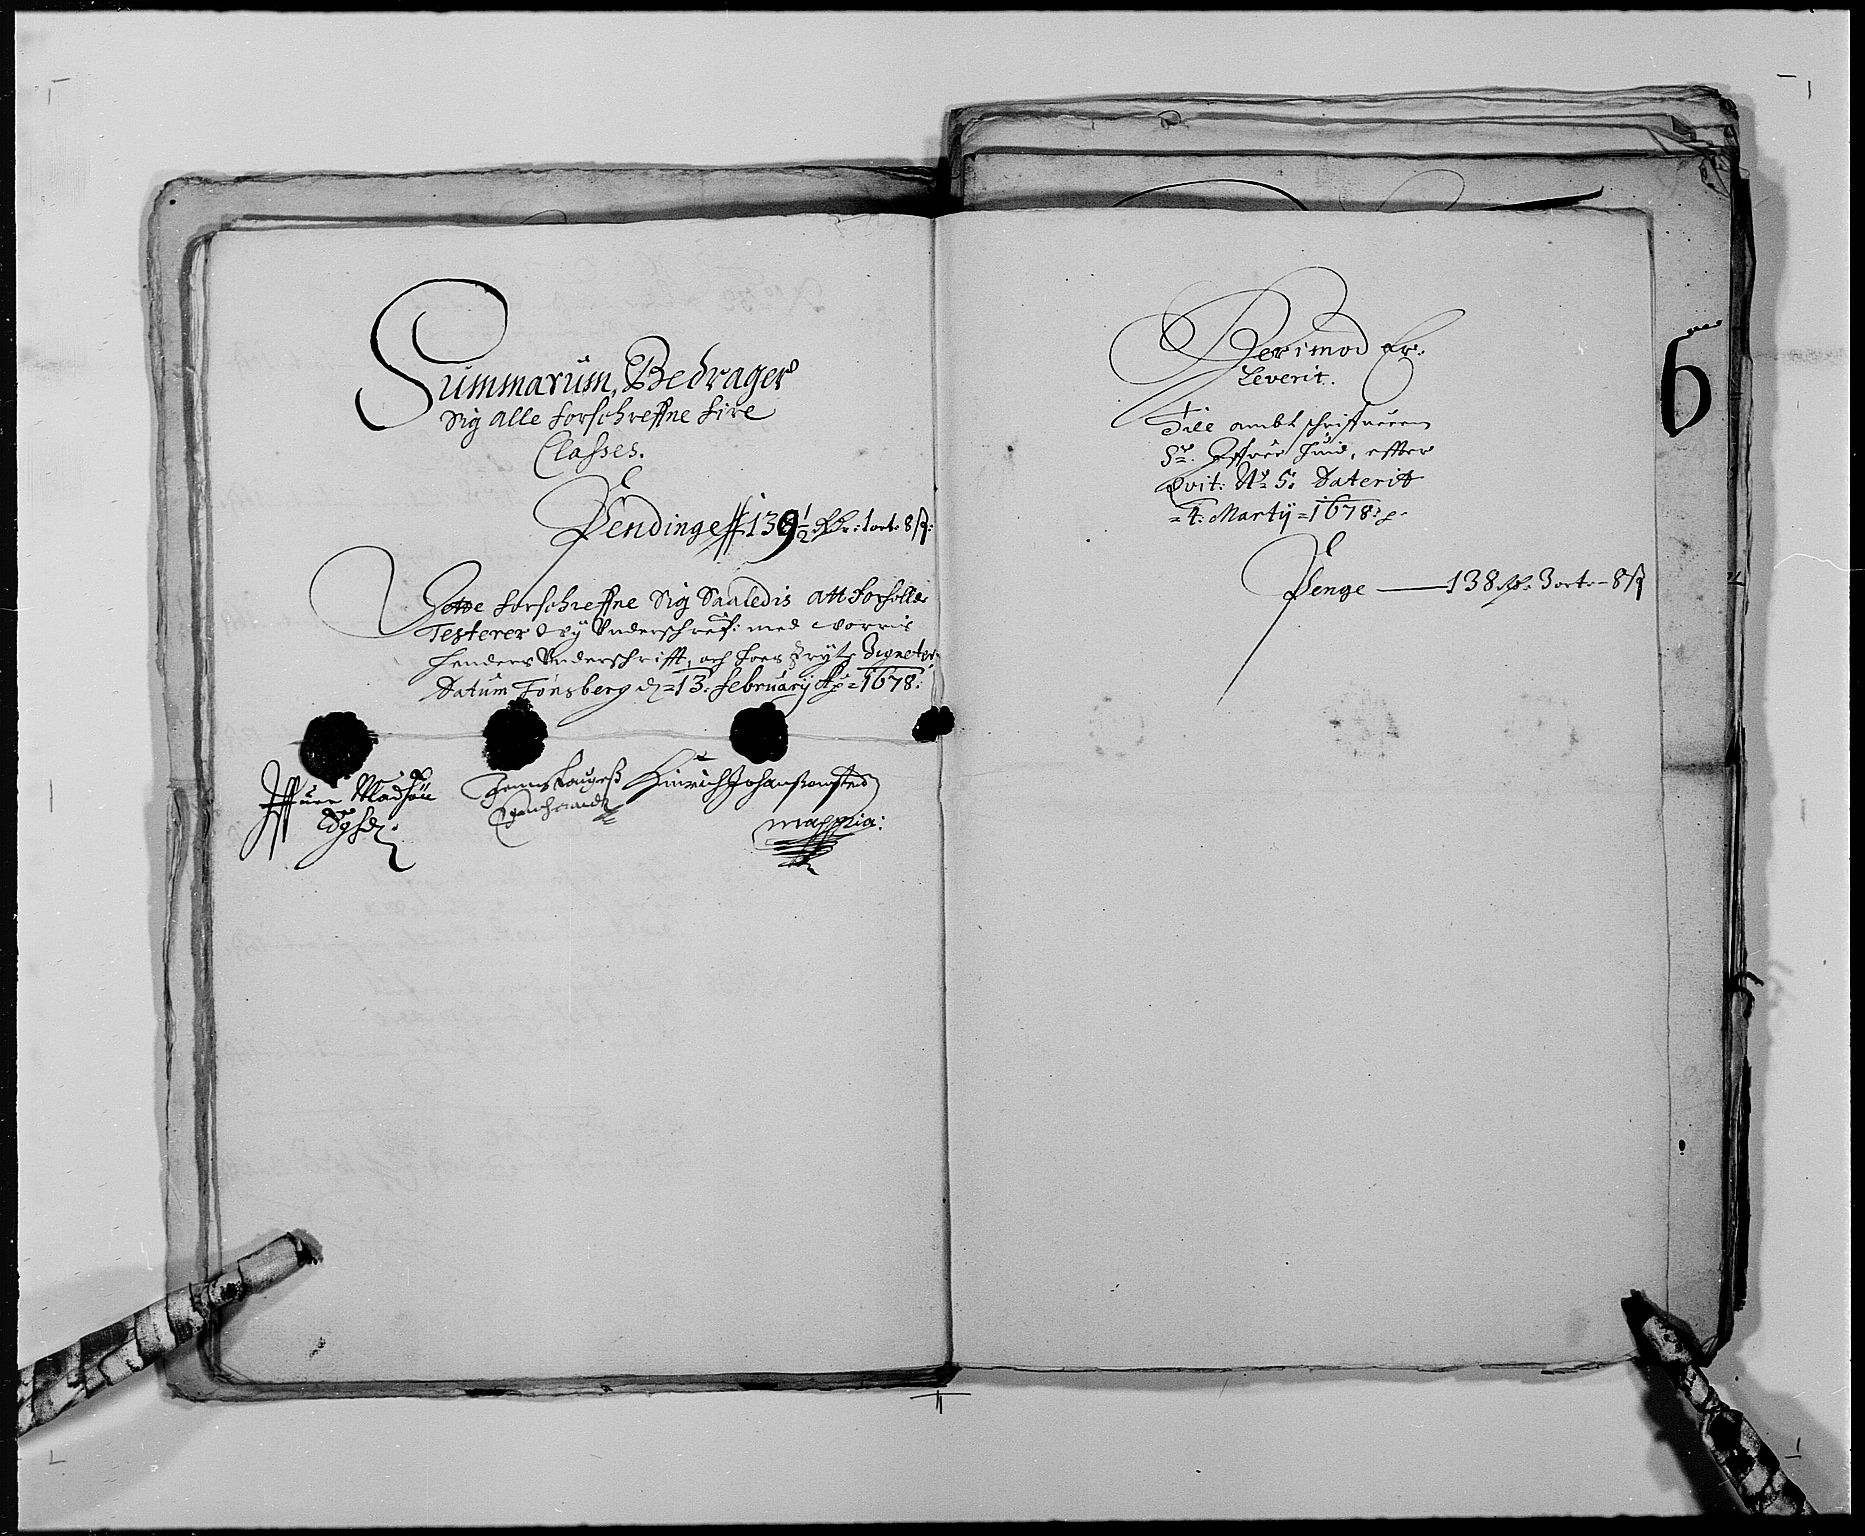 Summarum, Bedrager
Sig alle forschreffne fire
Classes.
Pendinge 139½ Rdr: 1 ort. 8 ß:
Dette forschreffne Sig Saaledis att forholle
Testerer vy Underschreff: med vorris
henders Underschrifft, och hoes tryte Zigneter
Datum Tønsberg d. 13. february Ao 1678:
Iffuer Madsøn
Hinrich Johansøn
mappria:
Herimod Er:
Leverit.
Till ambt schriffueren
Sr. Iffuer, effter
Qvit: No 5. Daterit
4: Martij 1678
Penge 138 Rdr. 3 ort 8 ß
6